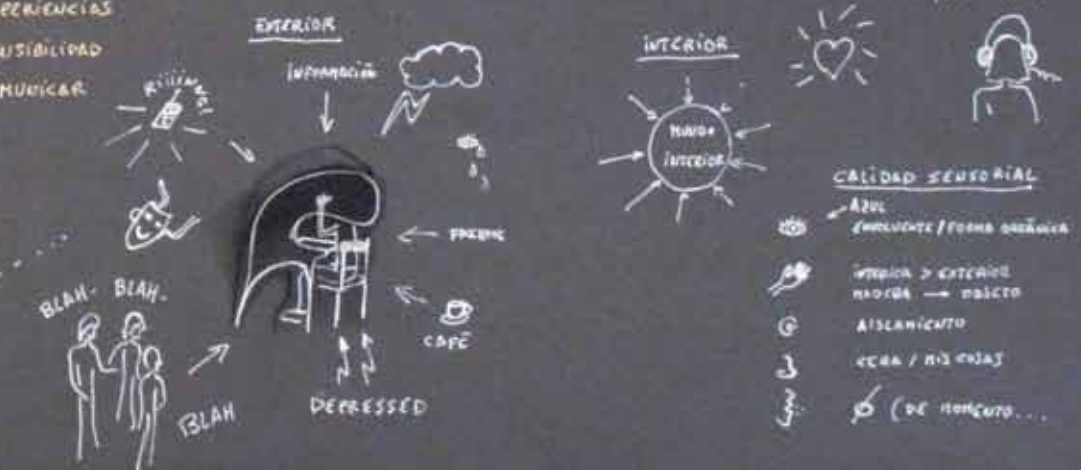 EXTERIOR
INFORMACIÓN
RIIIING!
CAFÉ
BLAH. BLAH.
BLAH
DEPRESSED
INTERIOR
MUNDO
INTERIOR
CALIDAD SENSORIAL
AZUL
ENVOLVENTE / FORMA ORGÁNICA
INTERIOR > EXTERIOR
MADERA → OBJETO
AISLAMIENTO
CERA / MIS COSAS
Ø (DE MOMENTO...